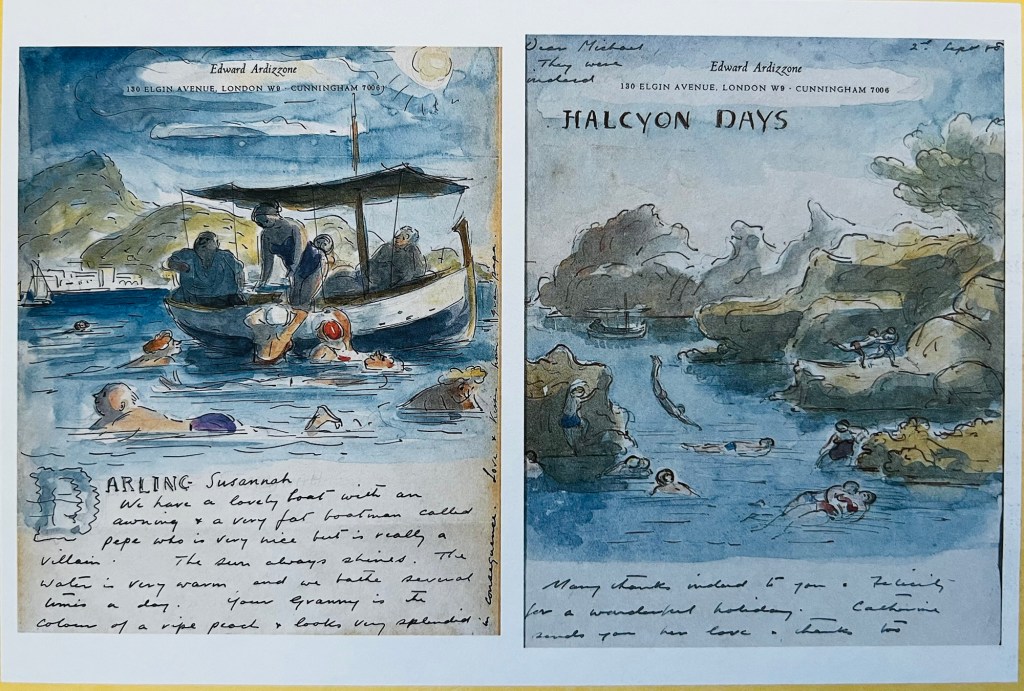 Edward Ardizzone
130 ELGIN AVENUE, LONDON W9 · CUNNINGHAM 7006
DARLING Susannah
We have a lovely boat with an
awning & a very fat boatman called
pepe who is very nice but is really a
villain. The sun always shines. The
water is very warm and we bathe several
times a day. Your Granny is the
colour of a ripe peach & looks very splendid
consequence. Love &
Dear Michael, 2nd Sept
They were
indeed
Edward Ardizzone
130 ELGIN AVENUE, LONDON W9 · CUNNINGHAM 7006
HALCYON DAYS
Many thanks indeed to you & Felicity
for a wonderful holiday. Catherine
sends you her love & thanks too